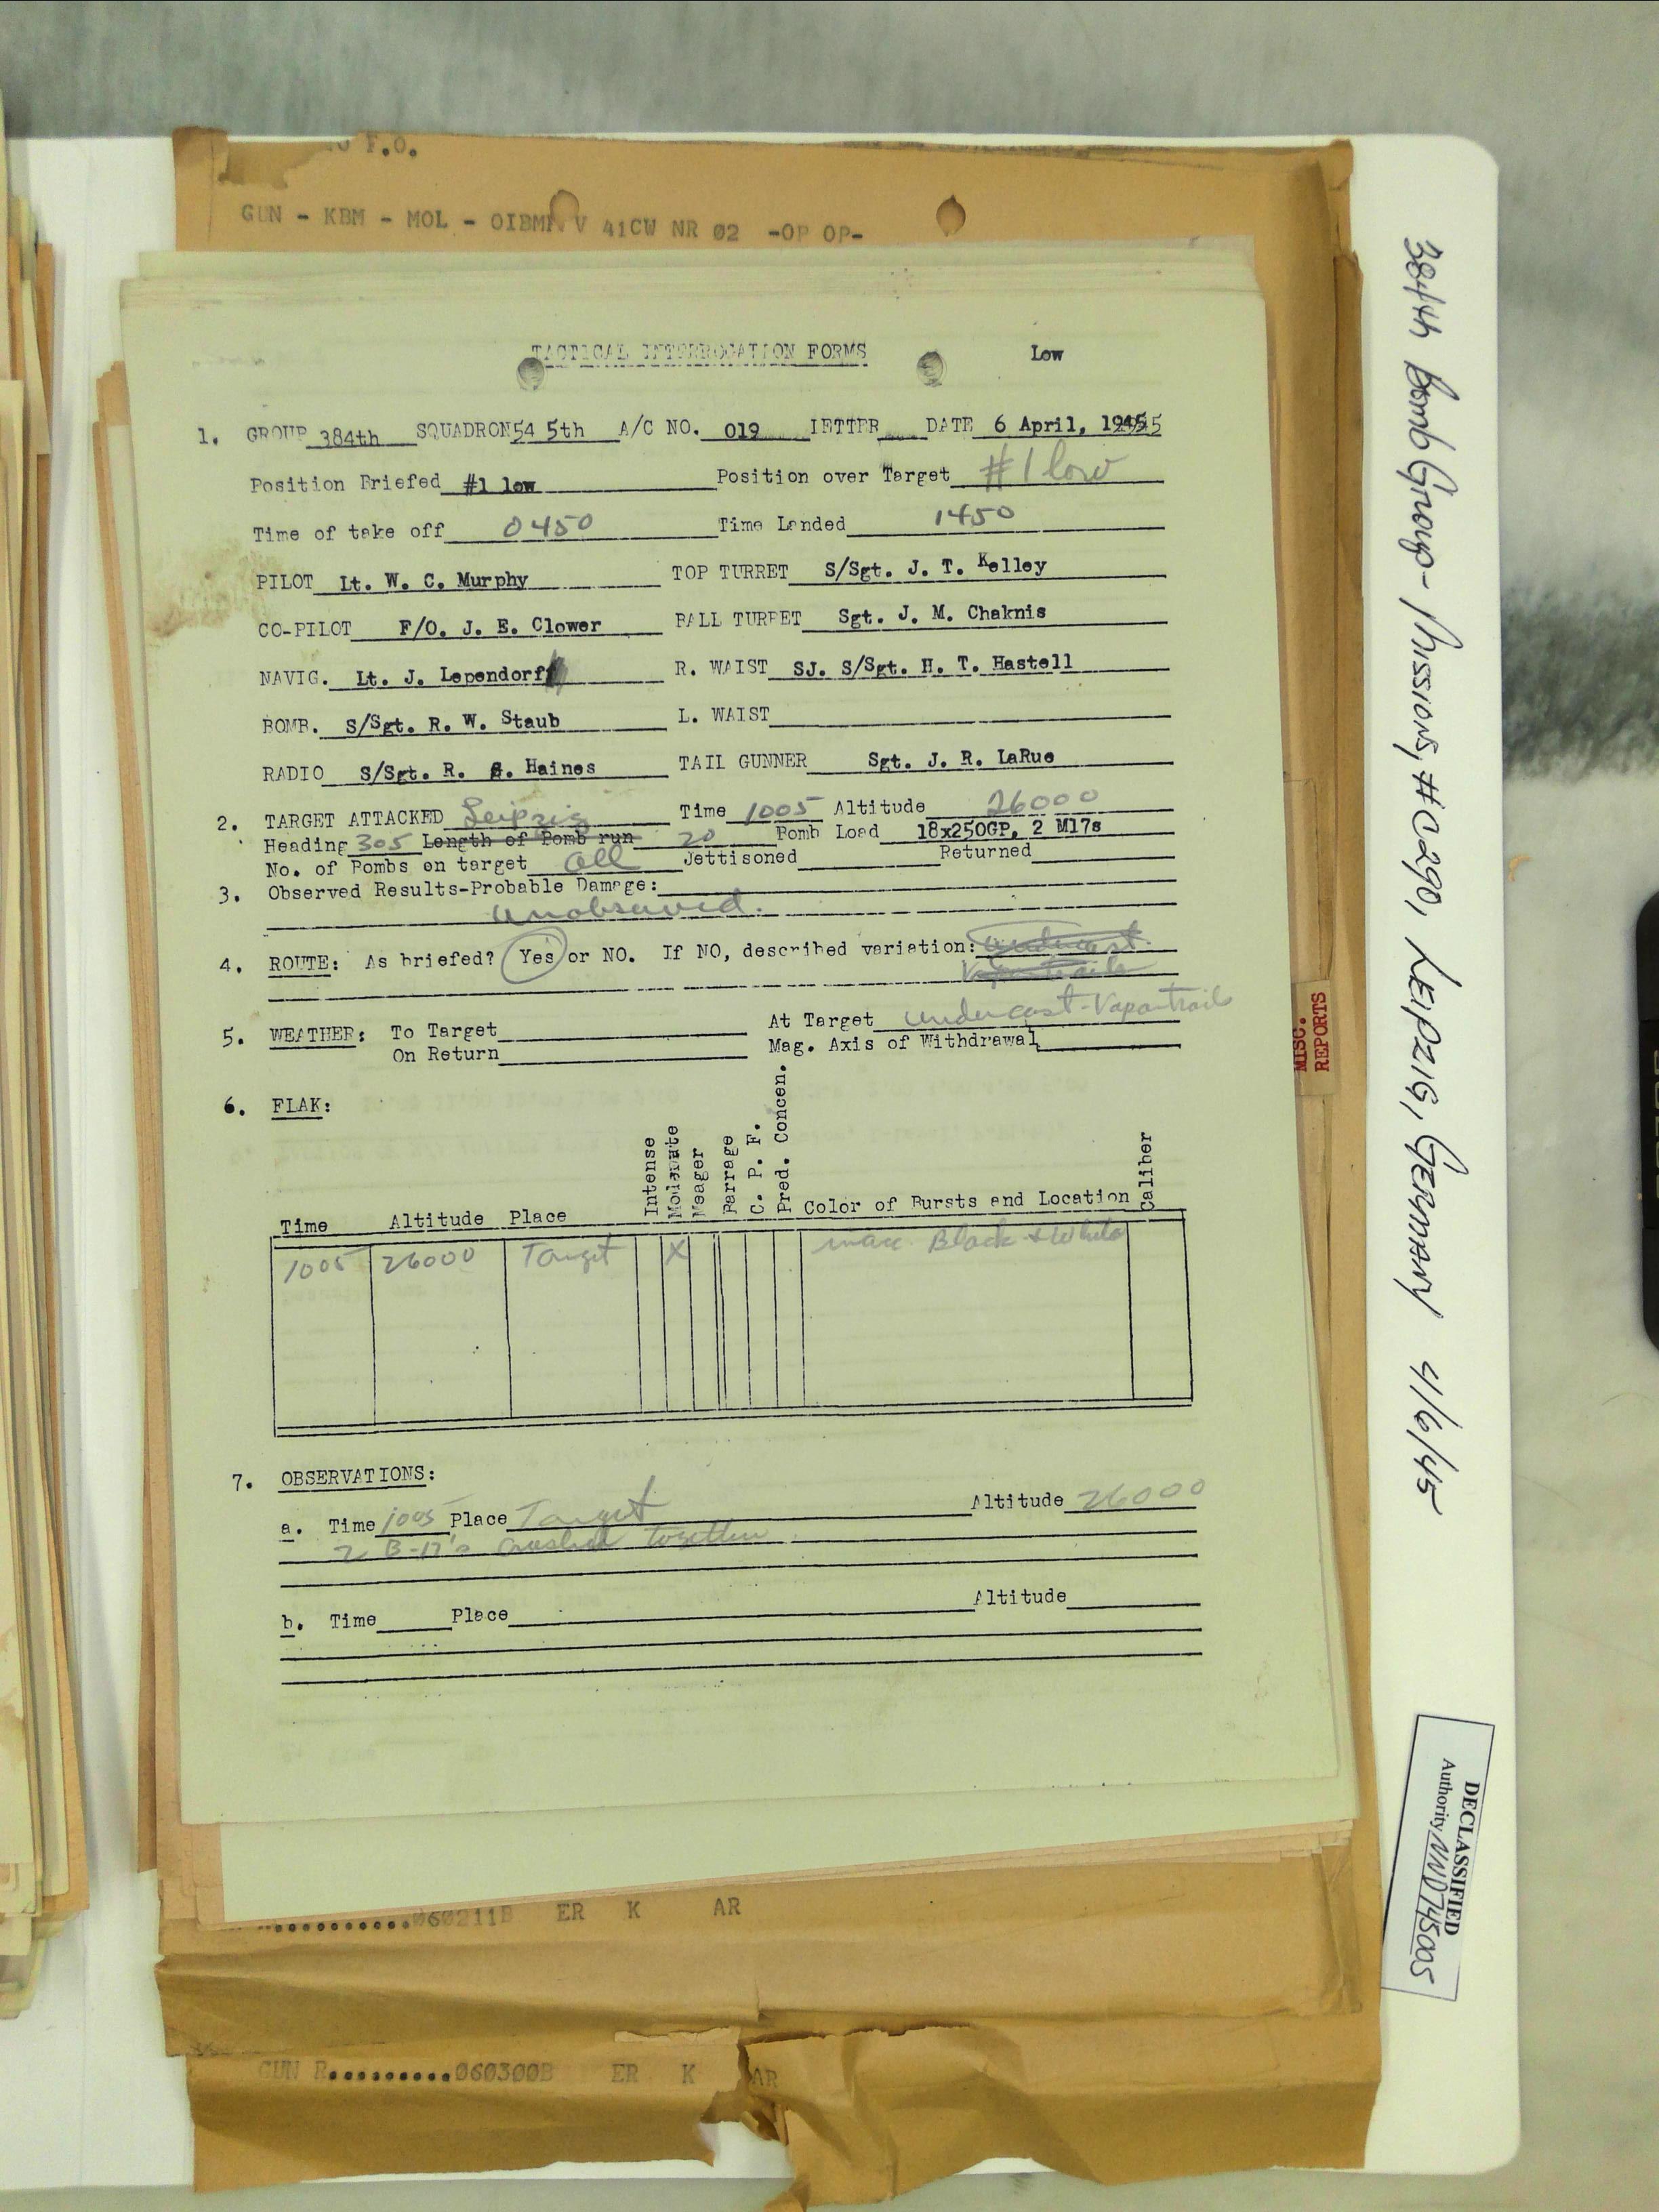 F.O.
GUN - KBM - MOL - OIBMR V 41CW NR 02 -OP OP-
TACTICAL INTERROGATION FORMS Low
1. GROUP 384th SQUADRON 54 5th A/C NO. 019 LETTER DATE 6 April, 1945
Position Briefed #1 low Position over Target #1 low
Time of take off 0450 Time Landed 1450
PILOT Lt. W. C. Murphy TOP TURRET S/Sgt. J. T. Kelley
CO-PILOT F/O. J. E. Clower BALL TURRET Sgt. J. M. Chaknis
NAVIG. Lt. J. Lependorf R. WAIST SJ. S/Sgt. H. T. Hastell
BOMB. S/Sgt. R. W. Staub L. WAIST
RADIO S/Sgt. R. G. Haines TAIL GUNNER Sgt. J. R. LaRue
2. TARGET ATTACKED Leipzig Time 1005 Altitude 26000
Heading 305 Length of Bomb run 20 Bomb Load 18x250GP, 2 M17s
No. of Bombs on target all Jettisoned Returned
3. Observed Results-Probable Damage:
unobserved.
4. ROUTE: As briefed? Yes or NO. If NO, described variation: undercast.
Vapor trails
5. WEATHER: To Target At Target undercast-Vapor trails
On Return Mag. Axis of Withdrawal
6. FLAK:
Time Altitude Place Intense Moderate Meager Barrage C. P. F. Pred. Concen. Color of Bursts and Location Caliber
1005 26000 Target X Black + White
7. OBSERVATIONS:
a. Time 1005 Place Target Altitude 26000
2 B-17's crashed together
b. Time Place Altitude
060211B ER K AR
GUN R..........060300B ER K AR
MISC.
REPORTS
384th Bomb Group - Missions, #C290, LEIPZIG, GERMANY 4/6/45
DECLASSIFIED
Authority NND745005